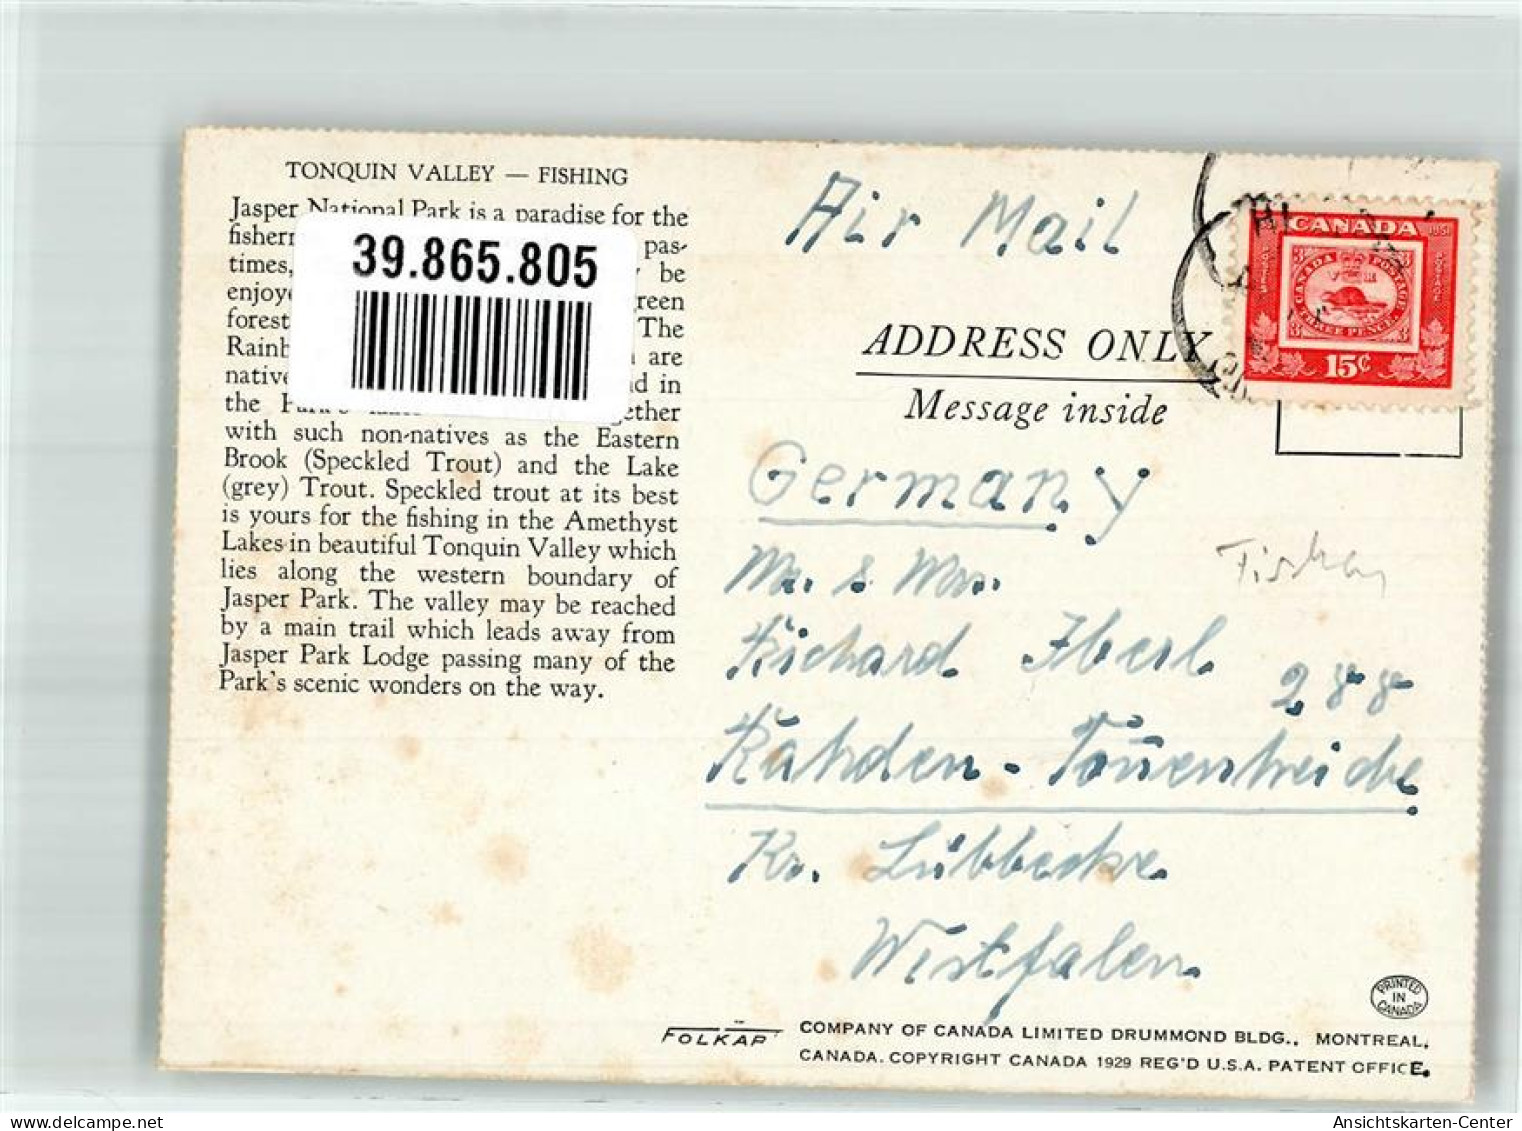 TONQUIN VALLEY — FISHING
Jasper National Park is a paradise for the
pas-
times, be
green
forest The
are
native in
the Park's
with such non-natives as the Eastern
Brook (Speckled Trout) and the Lake
(grey) Trout. Speckled trout at its best
is yours for the fishing in the Amethyst
Lakes in beautiful Tonquin Valley which
lies along the western boundary of
Jasper Park. The valley may be reached
by a main trail which leads away from
Jasper Park Lodge passing many of the
Park's scenic wonders on the way.
39.865.805
Air Mail
CANADA
1851 1951
POSTES POSTAGE
CANADA POSTAGE
THREE PENCE
3 3
3 3
15¢
ADDRESS ONLY
Message inside
Germany
Mr. & Mrs.
Richard Iberl
288
Rahden - Tonnenheide
Kr. Lübbecke
Westfalen
PRINTED
IN
CANADA
FOLKAP COMPANY OF CANADA LIMITED DRUMMOND BLDG., MONTREAL,
CANADA. COPYRIGHT CANADA 1929 REG'D U.S.A. PATENT OFFICE.
Ansichtskarten-Center